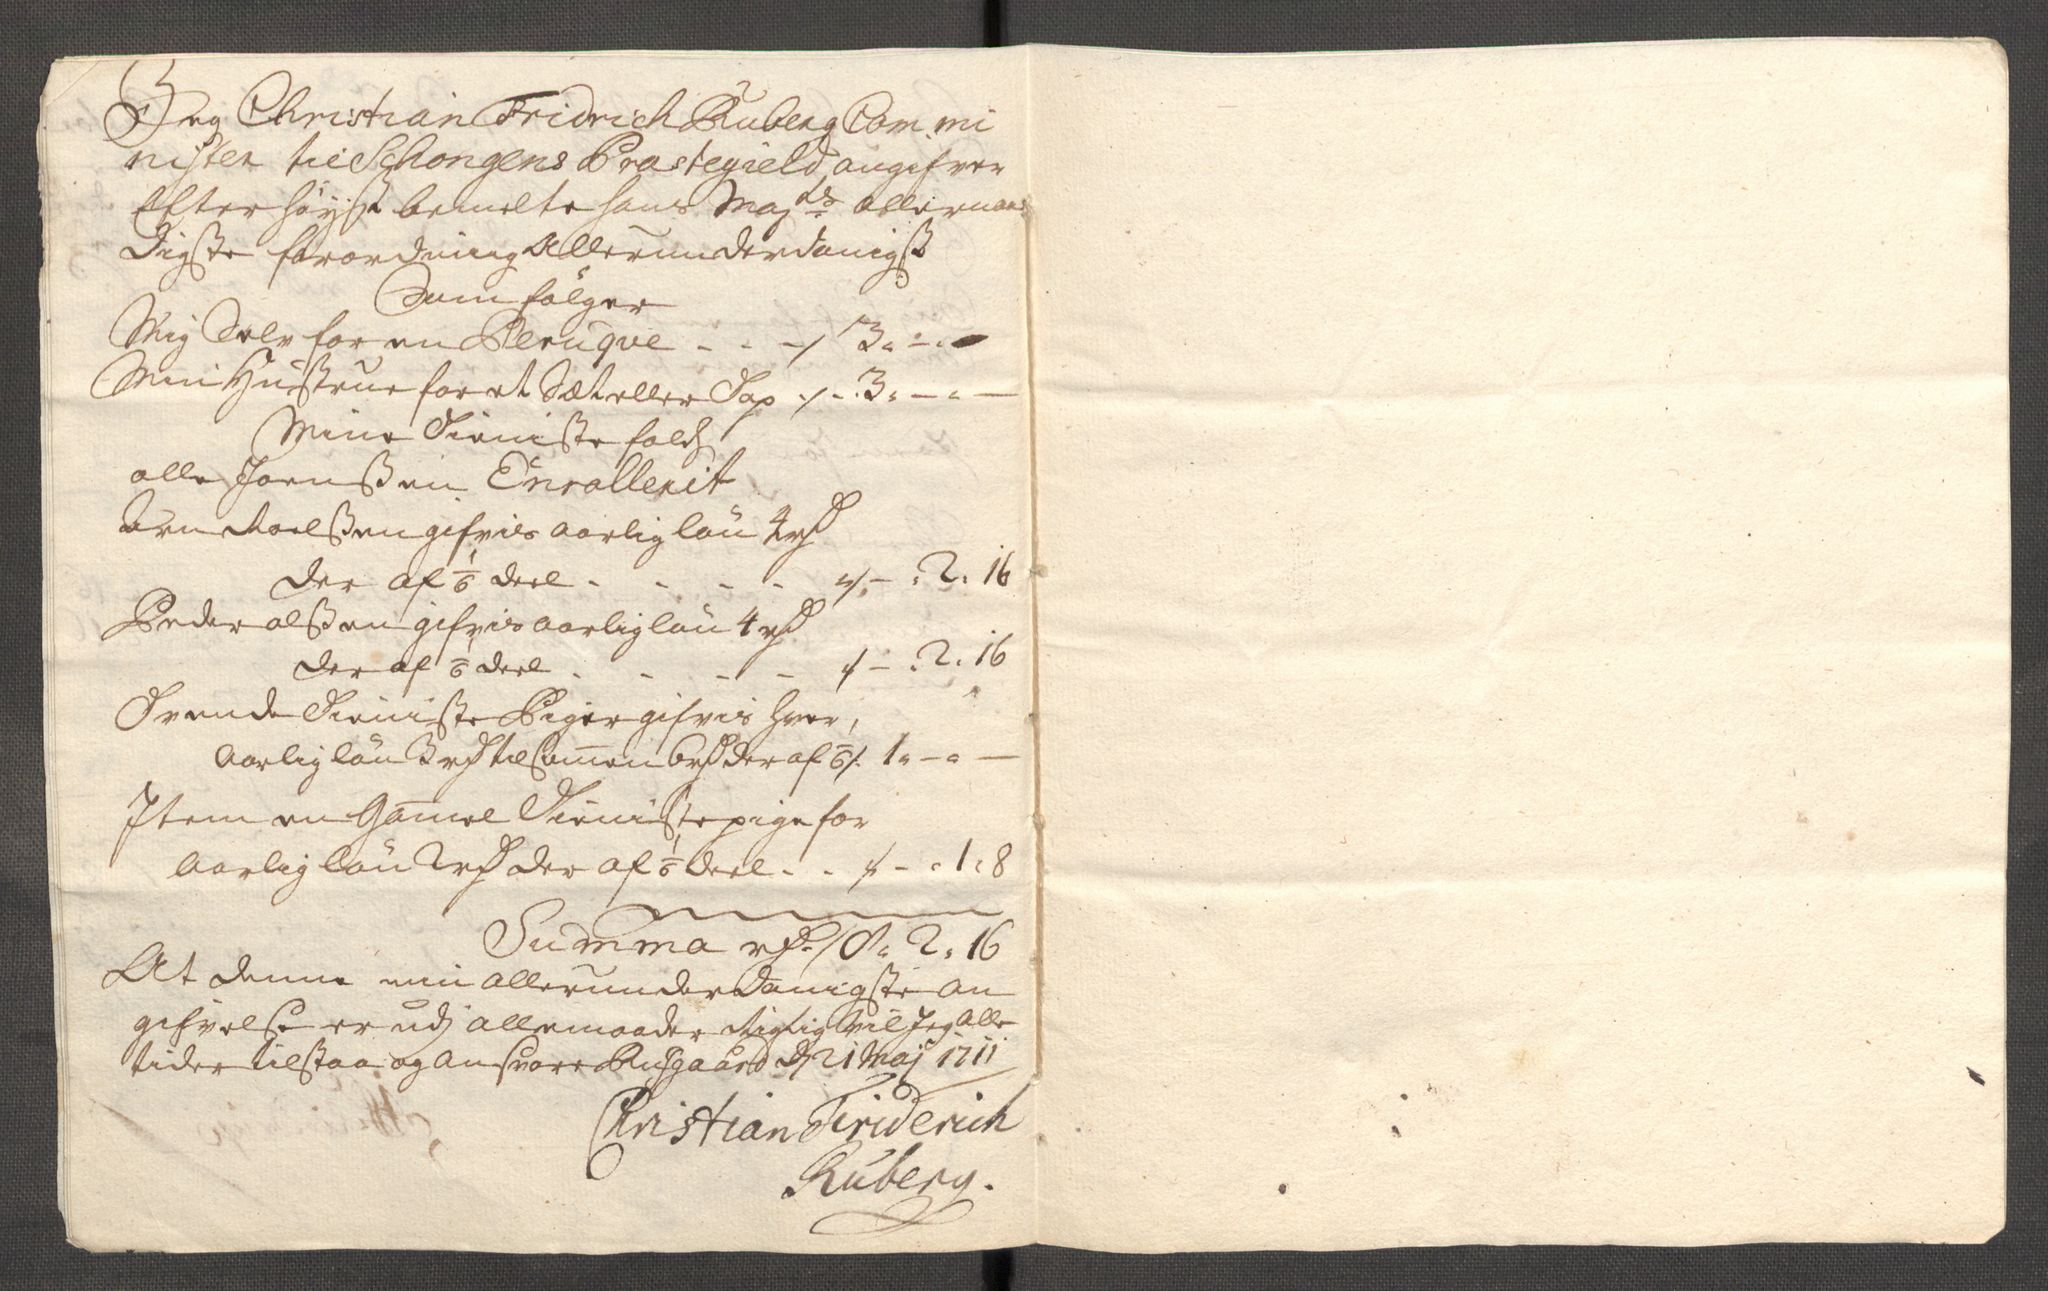 Jeg Christian Fridrich Ruberg Commi
nister til Schongens Præstegield angifver
Efter høyst bemelte hans Maj:ts allernaa
digste forordning Allerunderdanigst
Som følger
Mig Selv for en Peruqve - - - 3 „ - „ -
Min Hustrue for et Sæt eller Top - 3 „ - „ -
Mine Tieniste folch
olle Joenssen Enrollerit
Aren Roelssen gifvis aarlig løn 4 rd
der af 1/6 deel - - - - - : 2 : 16
Peder olssen gifvis aarlig løn 4 rd
der af 1/6 deel - - - - - : 2 : 16
Trende Tieniste Piger gifvis hver,
aarlig løn 2 rd tilsammen 6 rd der af 1/6 1 „ - „ -
Item en Gammel Tieniste pige for
aarlig løn 2 rd der af 1/6 deel - - - : 1 : 8
Summa rd. 8 : 2 : 16
At denne min allerunderdanigste an
gifvelse er udj alle maader Rigtig vil Jeg alle
tider tilstaa og ansvare d 21 Maj 1711
Christian Friderich
Ruberg.